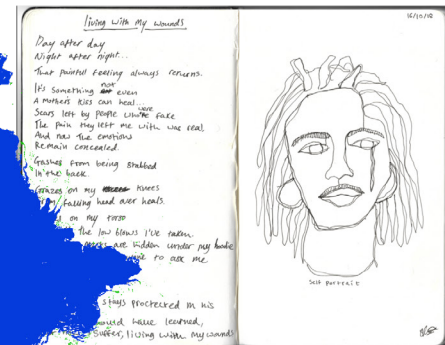 living with My wounds
Day after day
Night after night...
That painful feeling always returns.
It's something not even
A mothers kiss can heal...
Scars left by people who were fake
The pain they left me with was real
And now the emotions
Remain concealed.
Gashes from being stabbed
In the back.
Grazes on my knees
falling head over heals.
on my torso
the low blows I've taken.
are hidden under my hoodie
to ask me
stays protected in his
would have learned,
suffer, living with my wounds
15/10/18
Self portrait